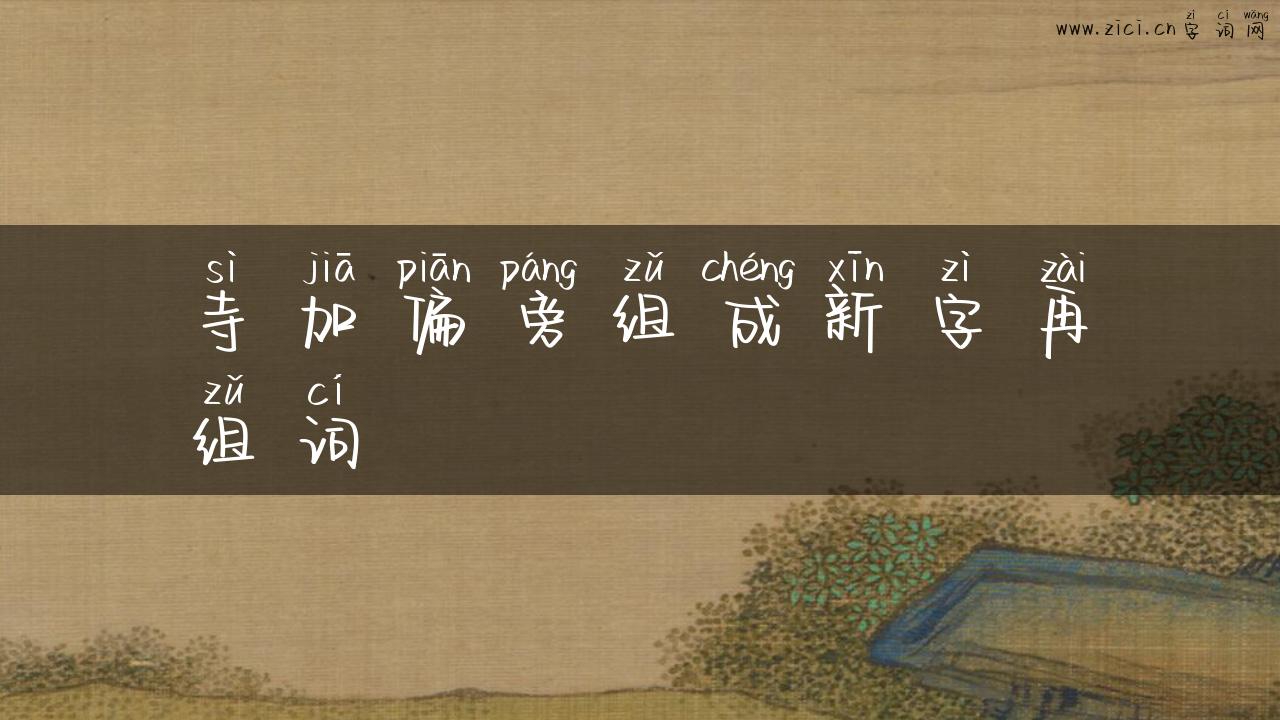 zì cí wǎng
www.zici.cn 字 词 网
sì jiā piān páng zǔ chéng xīn zì zài
寺 加 偏 旁 组 成 新 字 再
zǔ cí
组 词